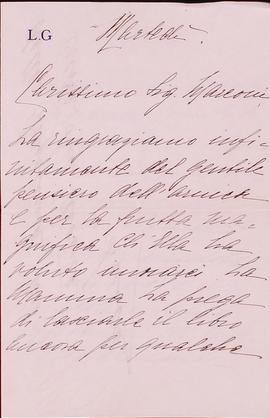 L.G
Martedì.
Carissimo Sig. Marconi
La ringraziamo infi-
nitamente del gentile
pensiero dell'arnica
e per la frutta ma-
gnifica ch'Ella ha
voluto inviarci. La
Mamma La prega
di lasciarle il libro
ancora per qualche